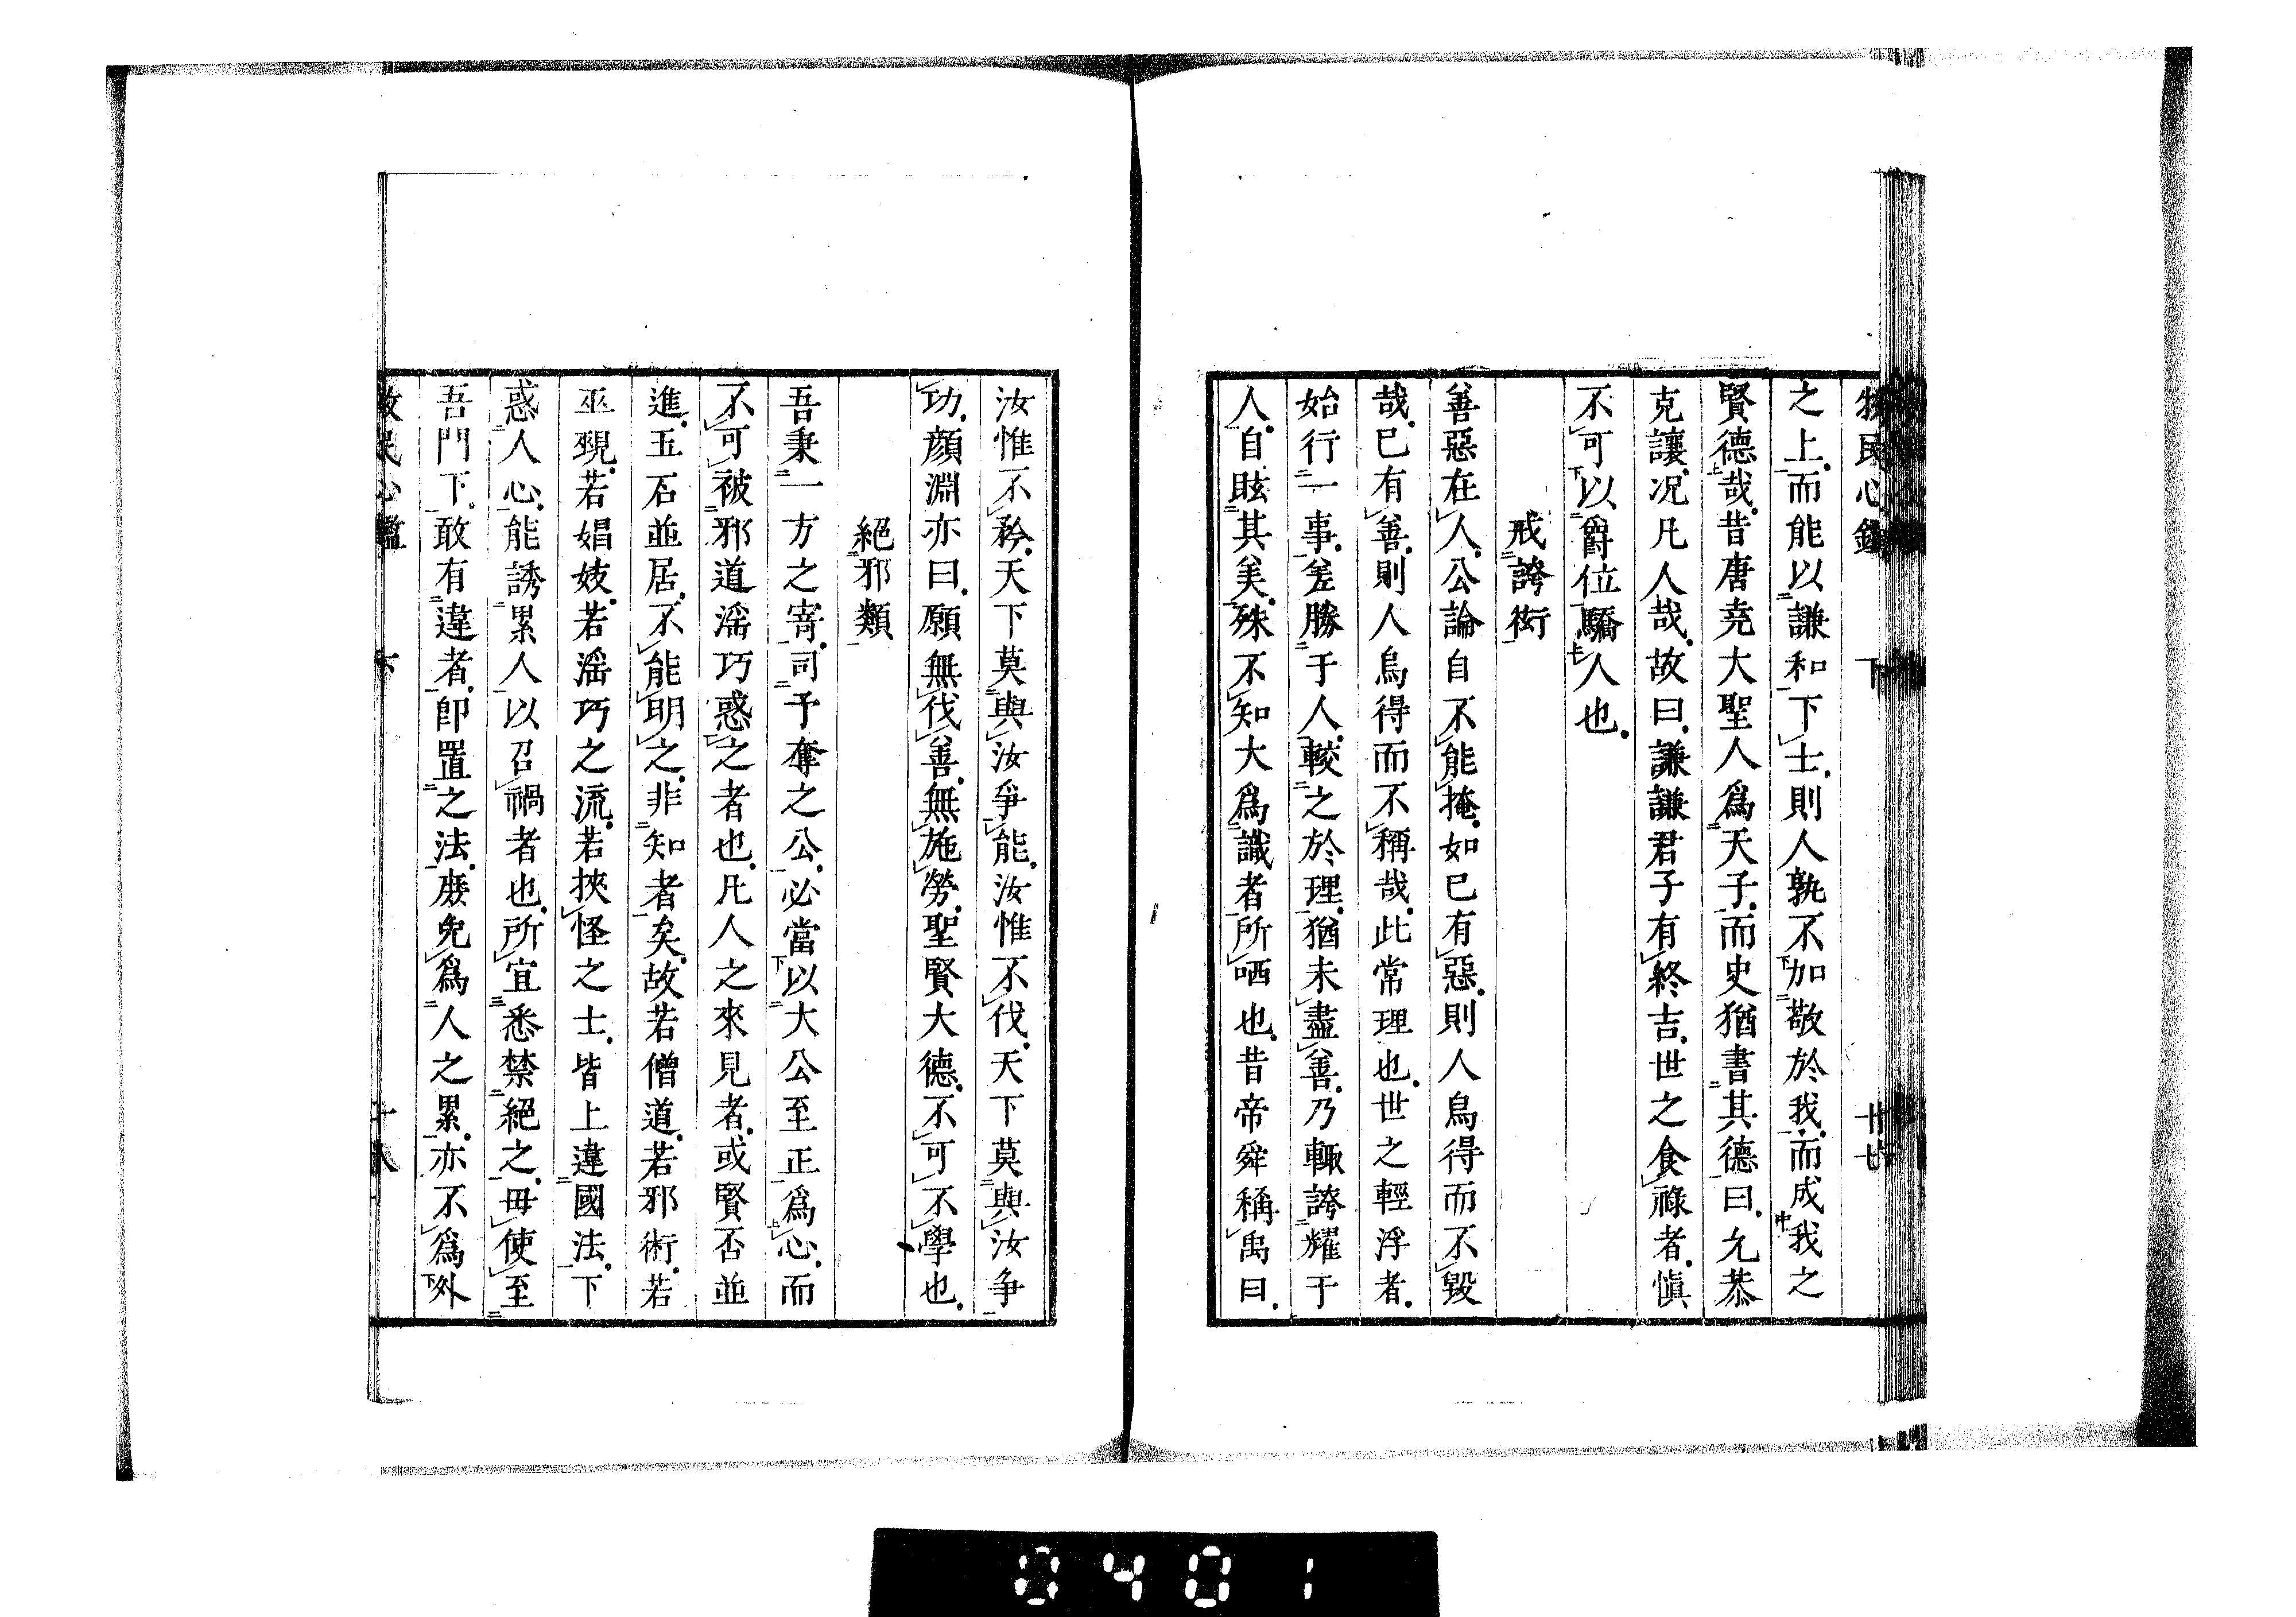 牧民心鑑 下 廿七
之上而能以謙和下士則人孰不加敬於我而成我之
賢德哉昔唐堯大聖人爲天子而史猶書其德曰允恭
克讓况凡人哉故曰謙謙君子有終吉世之食祿者愼
不可以爵位驕人也
戒誇衒
善惡在人公論自不能掩如已有惡則人烏得而不毀
哉已有善則人烏得而不稱哉此常理也世之輕浮者
始行一事差勝于人較之於理猶未盡善乃輙誇耀于
人自眩其美殊不知大爲識者所哂也昔帝舜稱禹曰
汝惟不矜天下莫與汝爭能汝惟不伐天下莫與汝爭
功顏淵亦曰願無伐善無施勞聖賢大德不可不學也
絕邪類
吾秉一方之寄司予奪之公必當以大公至正爲心而
不可被邪道滛巧惑之者也凡人之來見者或賢否並
進玉石並居不能明之非知者矣故若僧道若邪術若
巫覡若娼妓若滛巧之流若挾怪之士皆上違國法下
惑人心能誘累人以召禍者也所宜悉禁絕之毋使至
吾門下敢有違者卽置之法庶免爲人之累亦不爲外